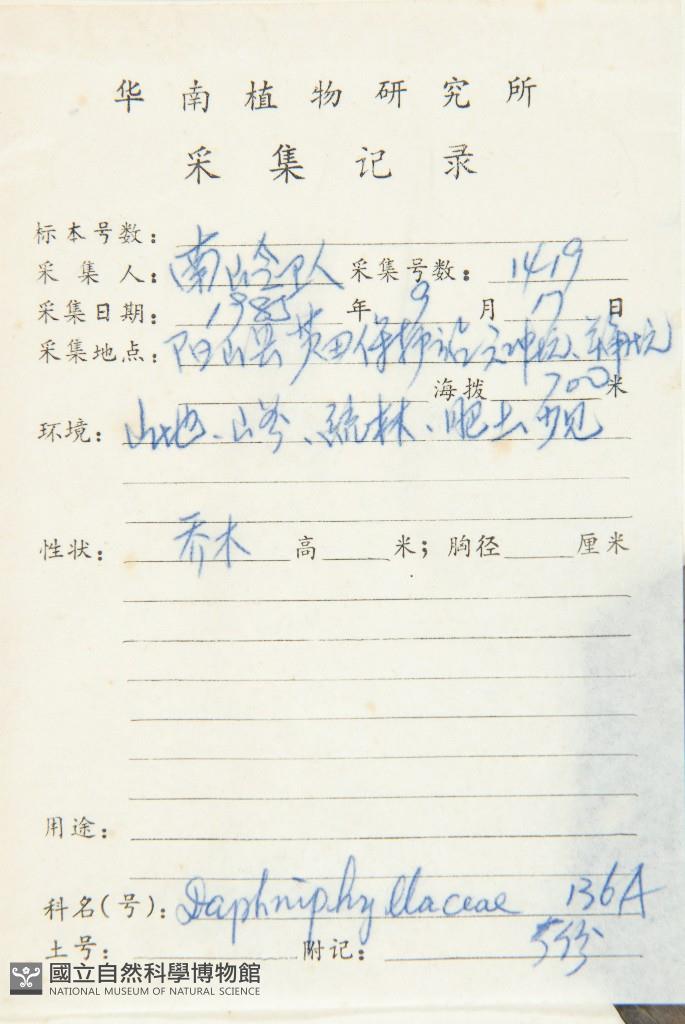 华南植物研究所
采集记录
标本号数：
采集人：南岭队 采集号数：1419
采集日期：1985年9月17日
采集地点：阳山县 黄田保护站
海拨 700米
环境：山地、山谷、疏林、肥土少见
性状：乔木 高 米；胸径 厘米
用途：
科名(号)：Daphniphyllaceae 136A
土号： 附记：5份
國立自然科學博物館
NATIONAL MUSEUM OF NATURAL SCIENCE